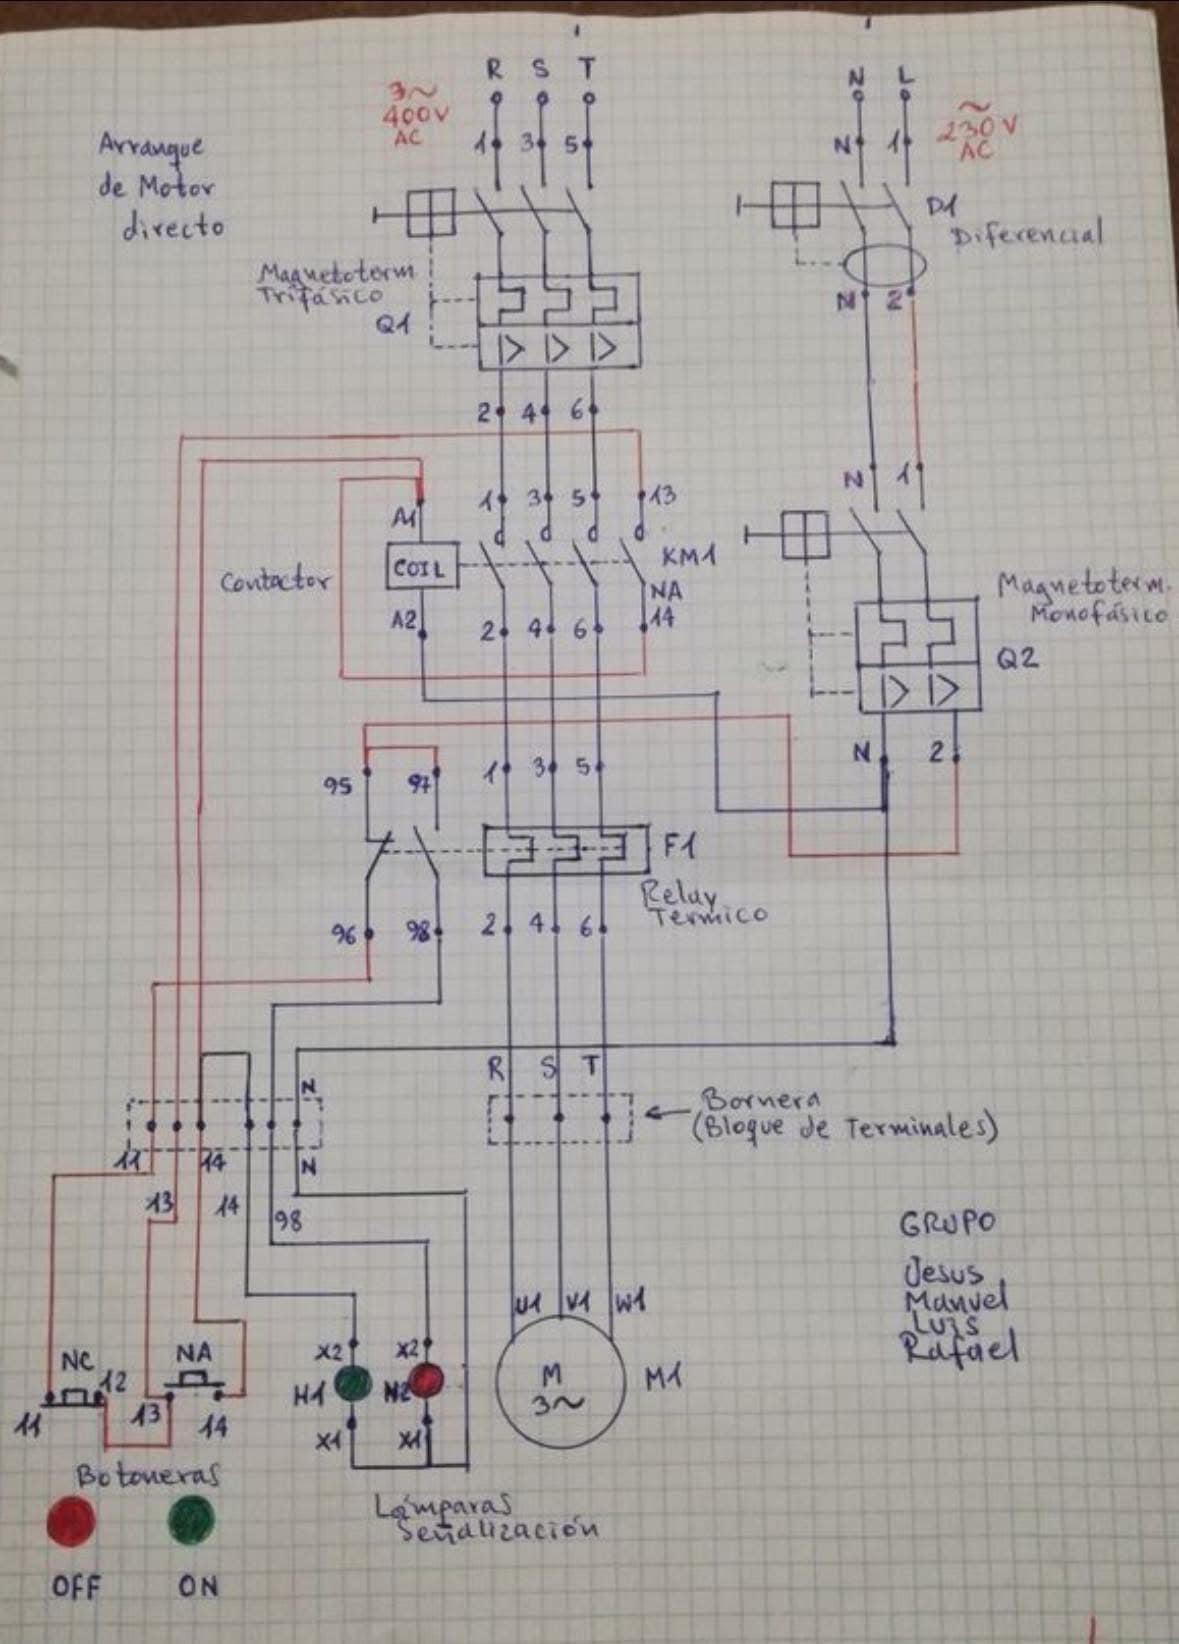 R S T
3~
400V
AC
1 3 5
N L
~
230V
AC
N 1
Arranque
de Motor
directo
D1
Diferencial
N 2
Magnetoterm
Trifásico
Q1
2 4 6
N 1
A1
1 3 5 13
Contactor
COIL
KM1
NA
A2
2 4 6 14
Magnetoterm.
Monofásico
Q2
N 2
95 97 1 3 5
F1
Relay
Termico
96 98 2 4 6
R S T
N
Bornera
(Bloque de Terminales)
11 14 N
13 14 98
GRUPO
Jesus
Manuel
Luis
Rafael
U1 V1 W1
NC NA
X2 X2
12
H1 H2
M
3~
M1
11 13 14
X1 X1
Botoneras
Lámparas
Señalización
OFF ON